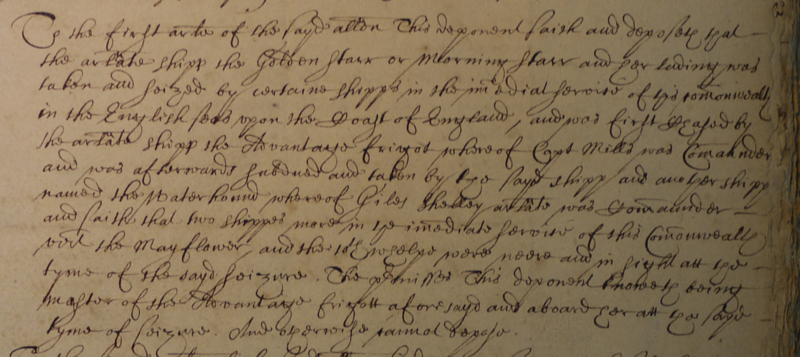 To the first arłe of the sayd allõn This deponent saith and deposeth that
the arłate shipp the Golden Starr or Morning Starr and her lading was
taken and seized by certaine shipps in the imediat service of this comonwealth
in the English seas upon the Coast of England, and was first chased by
the arłate shipp the Advantage frigot whereof Capt Mills was Comaunder
and was afterwards subdued and taken by the sayd shipp and another shipp
named the Waterhound whereof Giles Shelley arłate was Comaunder
and saithe that two shippes more in the imediate service of this Comonwealth
vizt the Mayflower, and the 10th whelpe were neere and in sight att the
tyme of the sayd seizure. The p̃misses This deponent knoweth being
master of the Advantage frigott aforesayd and aboard her att the sayd
tyme of seizure. And otherwise cannot depose.